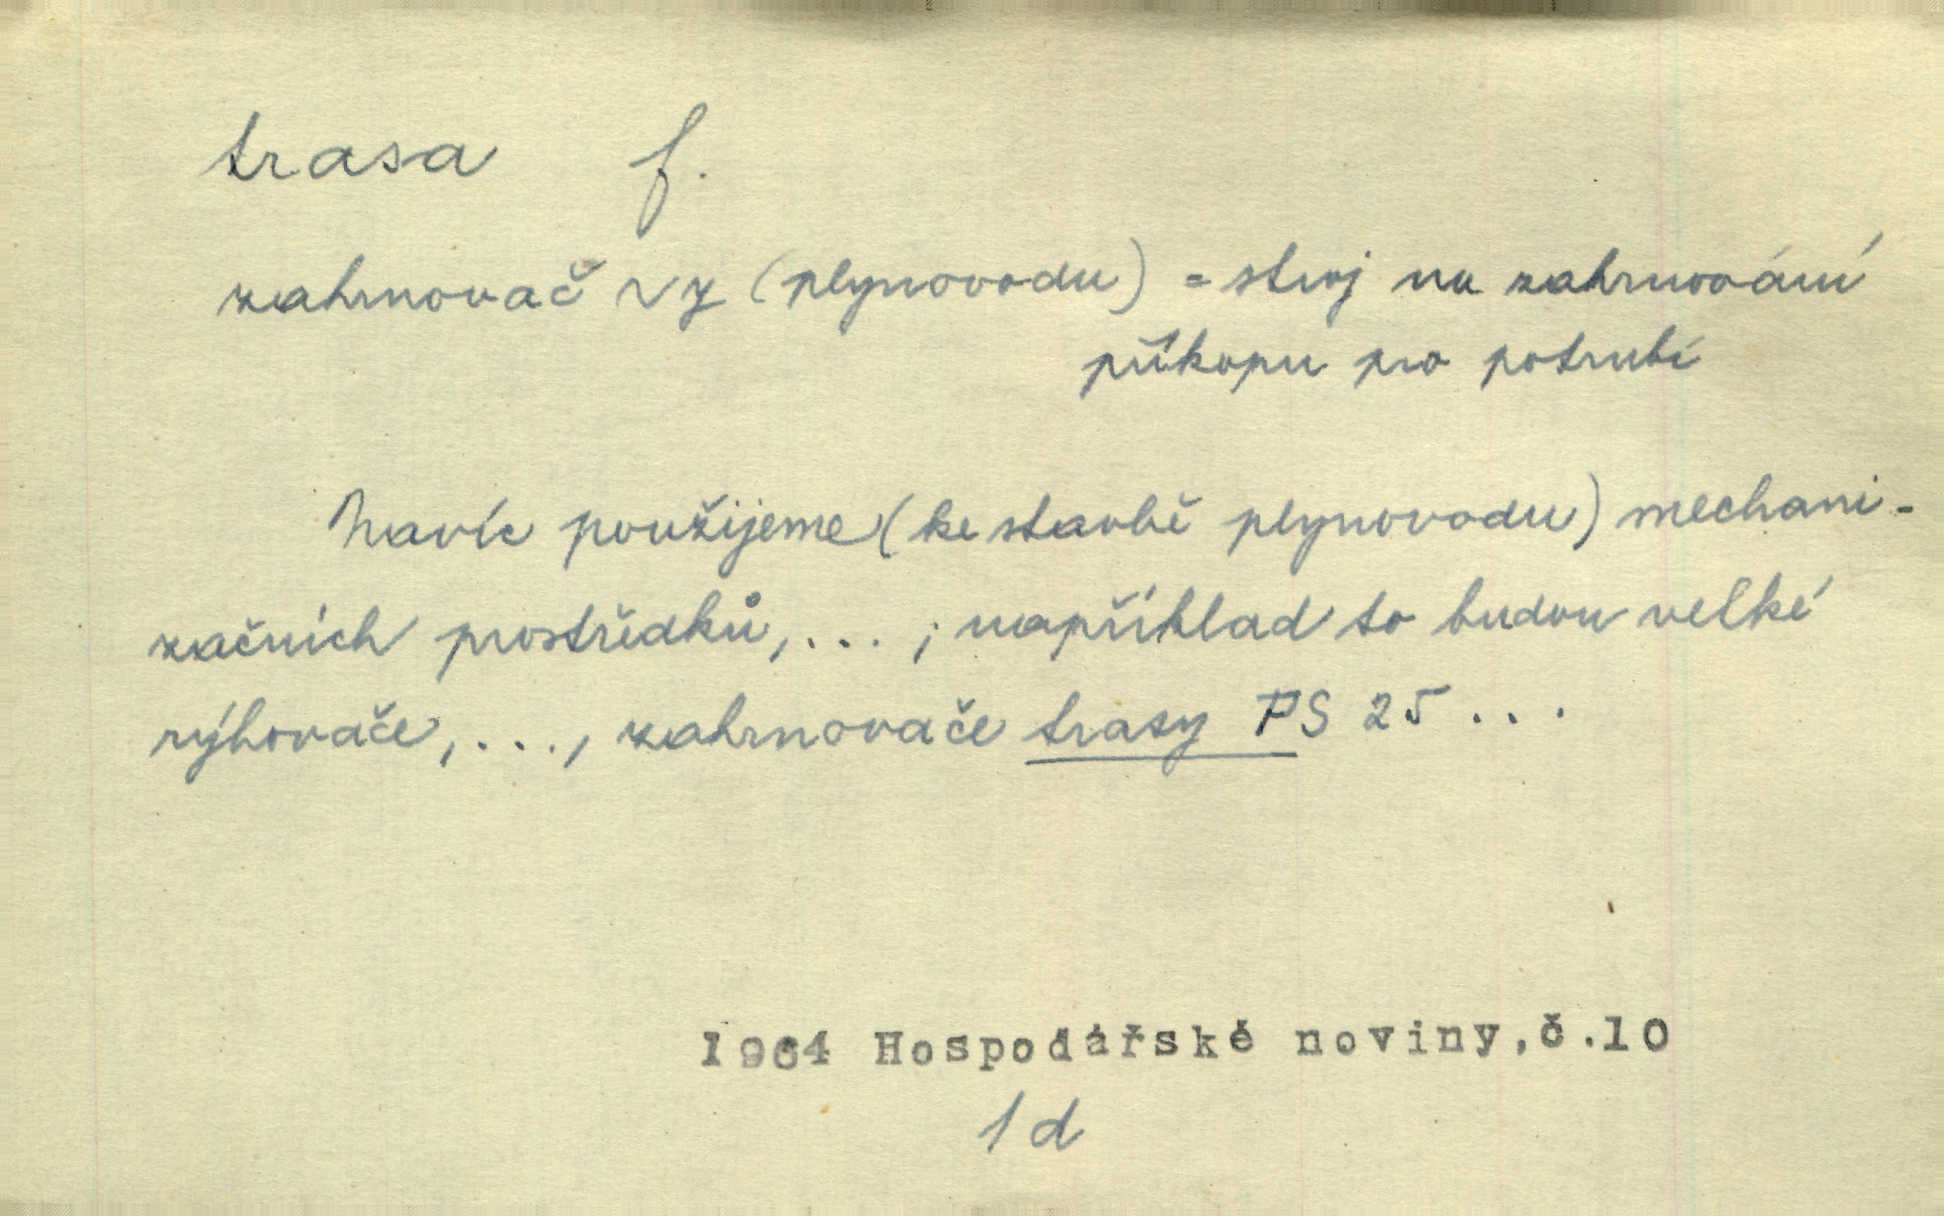 trasa f.
zahrnovač ~y (plynovodu) = stroj na zahrnování
příkopu pro potrubí
Navíc použijeme (ke stavbě plynovodu) mechani-
začních prostředků, ... ; například to budou velké
rýhovače, ..., zahrnovače trasy PS 25 ...
1964 Hospodářské noviny, č.10
1d